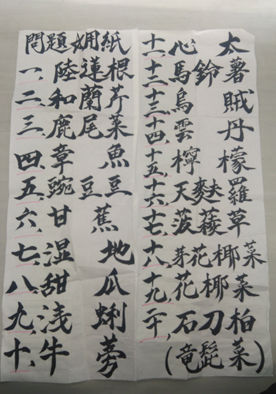 問題用紙
一、陸蓮根
二、和蘭芹
三、鹿尾菜
四、章魚
五、豌豆豆
六、甘蕉
七、湿地
八、甜瓜
九、浅蜊
十、牛蒡
十一、心太
十二、馬鈴薯
十三、烏賊
十四、雲丹
十五、檸檬
十六、天麩羅
十七、菠薐草
十八、芽花椰菜
十九、花椰菜
二十、石刀柏
(竜髭菜)